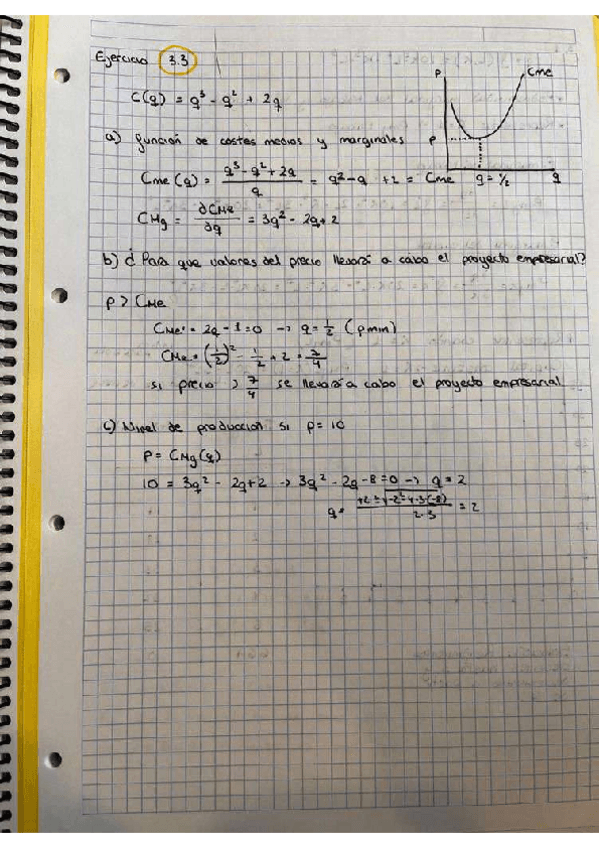 Ejercicio 3.3
C(q) = q³ - q² + 2q
P
Cme
P
q = 1/2
q
a) Función de costes medios y marginales
Cme(q) = (q³ - q² + 2q)/q = q² - q + 2 = Cme
CMg = ∂CMe/∂q = 3q² - 2q + 2
b) ¿Para que valores del precio llevará a cabo el proyecto empresarial?
P > CMe
CMe' = 2q - 1 = 0 → q = 1/2 (pmin)
CMe = (1/2)² - 1/2 + 2 = 7/4
si precio > 7/4 se llevará a cabo el proyecto empresarial
c) Nivel de producción si P = 10
P = CMg(q)
10 = 3q² - 2q + 2 → 3q² - 2q - 8 = 0 → q = 2
q = (+2 ± √-2²-4·3(-8))/2·3 = 2